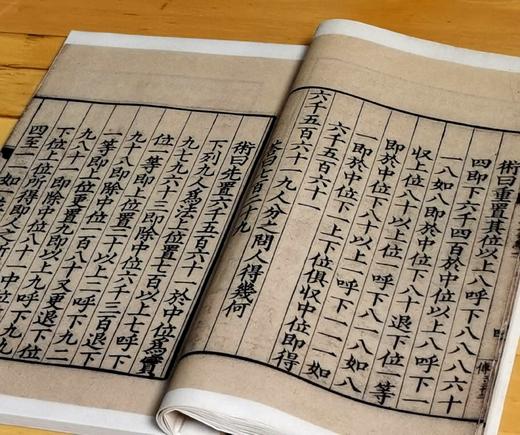 術曰重置其位以上八呼下八八八六十
四即下六千四百於中位以上八呼下一
一八如八即於中位下八十退下位一等
收上位八十以上位一呼下八一八如八
即於中位下八十以上一呼下一一一如
一即於中位下一上下位俱收中位即得
六千五百六十一
六千五百六十一九人分之問人得幾何
荅曰七百二十九
術曰先置六千五百六十一於中位為實
下列九人為法上位置七百以上七呼下
九七九六十三即除中位六千三百退下
位一等即上位置二十以上二呼下九二
九十八即除中位一百八十又更退下位
一等即上位更置九即以上九呼下九九
九八十一即除中位八十一中位
下位上位所得即人之所
四至一一如一